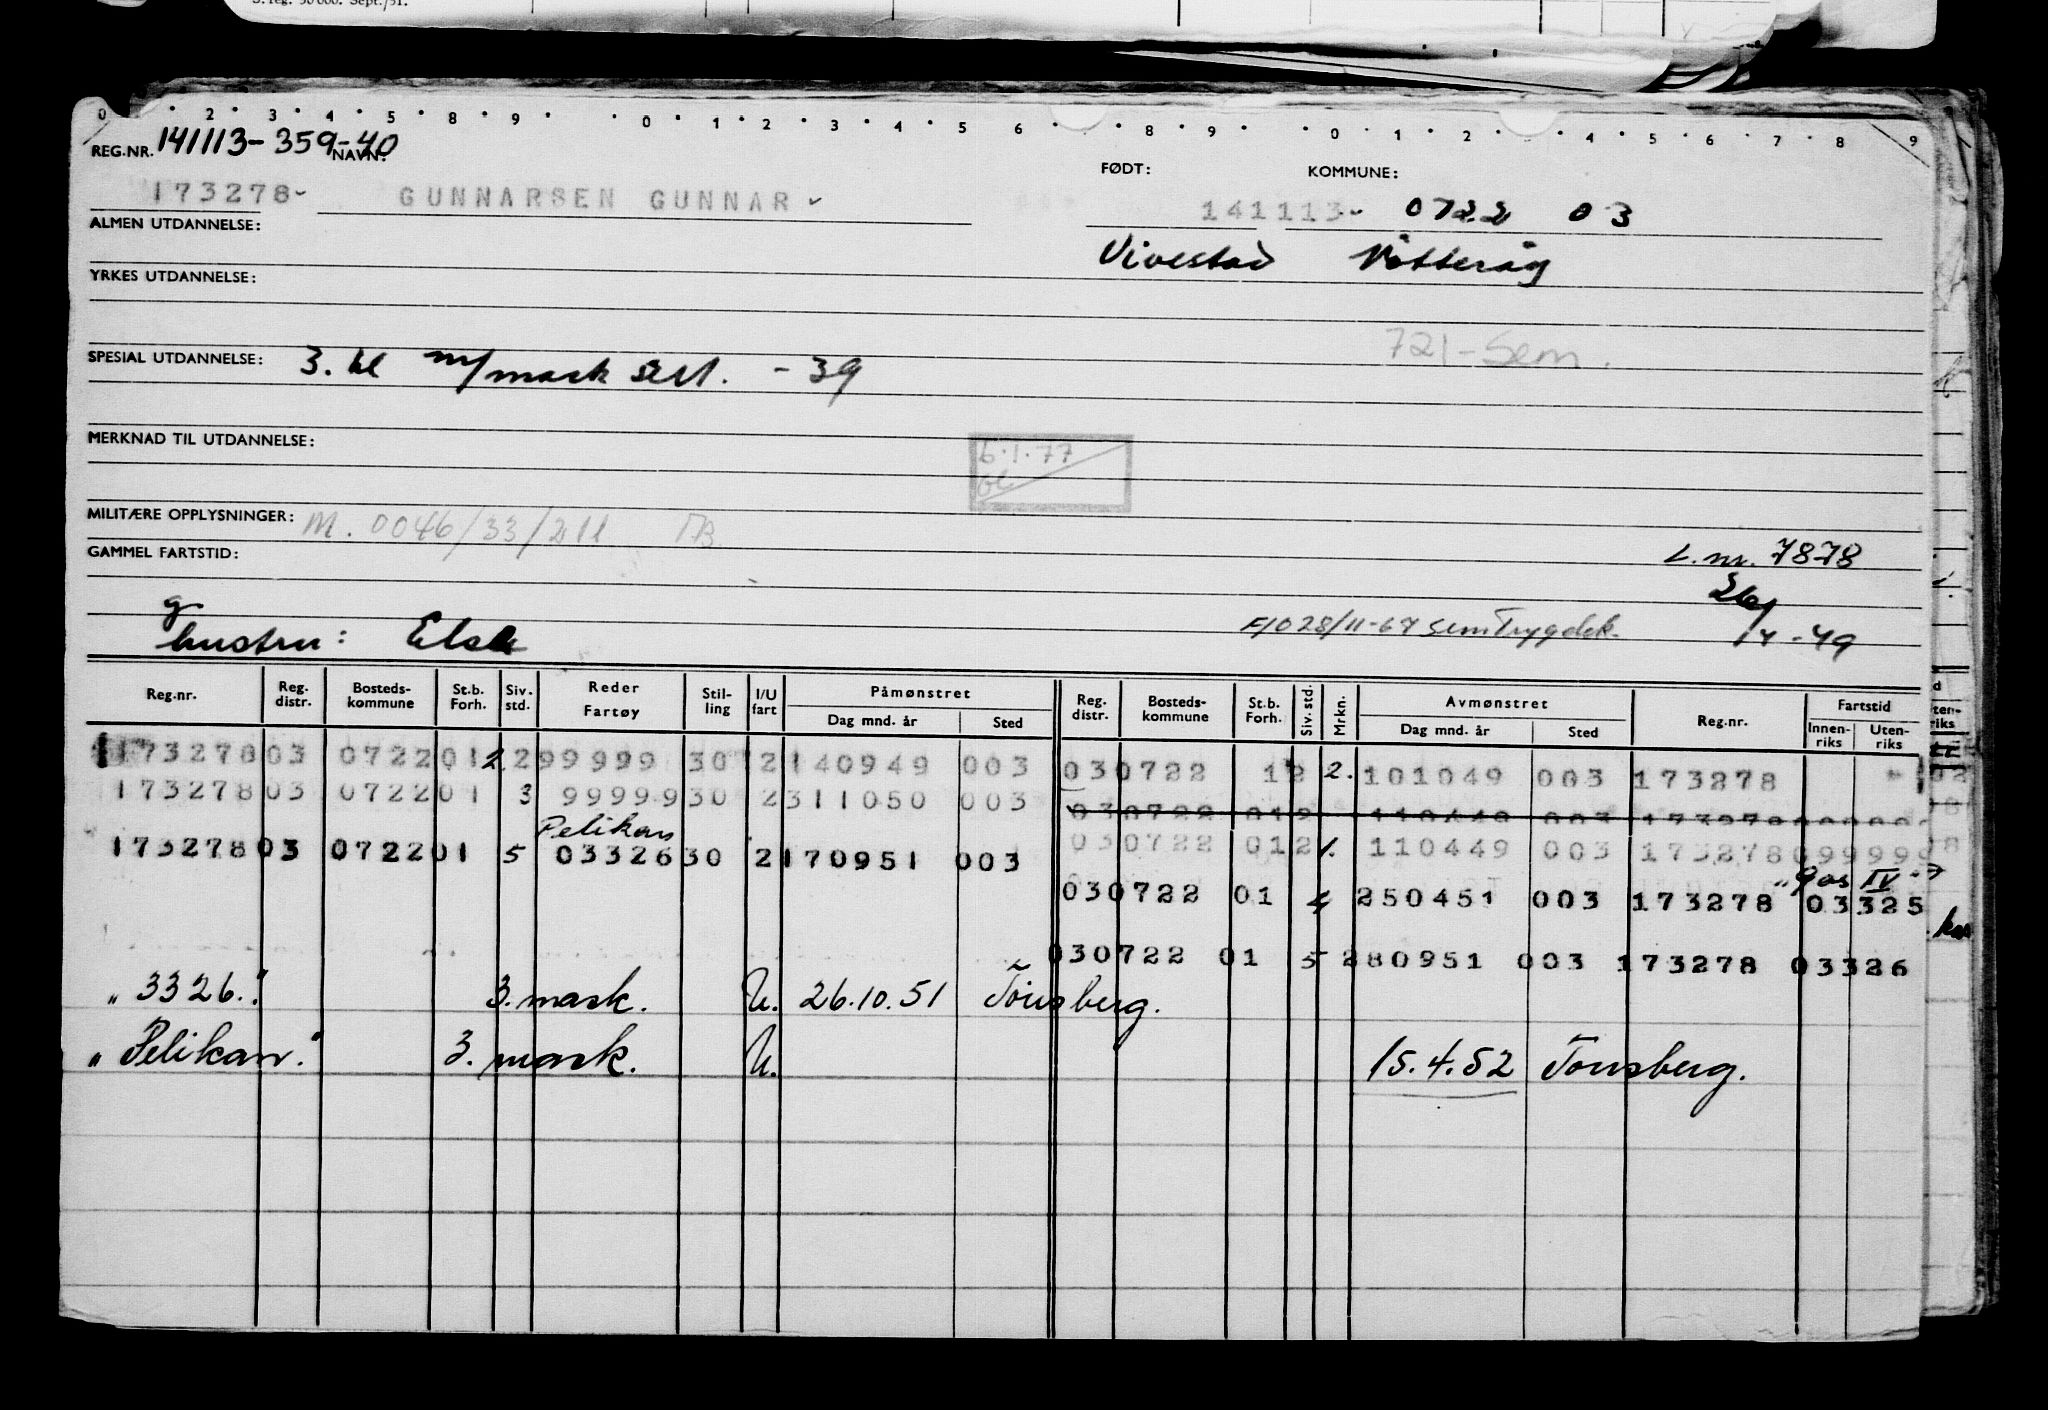 S. reg. 50 000. Sept./51.
0 2 3 4 5 8 9 0 1 2 3 4 5 6 8 9 0 1 2 4 5 6 7 8 9
REG.NR. 141113-359-40 NAVN: FØDT: KOMMUNE:
173278- GUNNARSEN GUNNAR 141113- 0722 03
ALMEN UTDANNELSE: Vivestad
YRKES UTDANNELSE:
721-Sem.
SPESIAL UTDANNELSE: 3. kl m/mask sert. - 39
MERKNAD TIL UTDANNELSE: 6.1.77
MILITÆRE OPPLYSNINGER: M. 0046/33/211
GAMMEL FARTSTID: L.nr. 7878
26/
hustru: Else F/O 28/11-67 Sem Trygdek. /4-49
Reg.nr. Reg. distr. Bosteds-kommune St.b. Forh. Siv. std. Reder Fartøy Stil-ling I/U fart Påmønstret Dag mnd. år Sted Reg. distr. Bosteds-kommune St.b. Forh. Siv. std. Mrkn. Avmønstret Dag mnd. år Sted Reg.nr. Fartstid Innen-riks Uten-riks
173278 03 0722 01 2. 2 99999 30 2 140949 003 03 0722 1 2 2. 101049 003 173278
173278 03 0722 01 3 99999 30 2 311050 003 03 0722 01 2 110449 003 173278 099999
Pelikan
173278 03 0722 01 5 03326 30 2 170951 003 03 0722 01 2 1. 110449 003 173278 099999
"Gos IV"
03 0722 01 4 250451 003 173278 03325
03 0722 01 5 280951 003 173278 03326
"3326." 3. mask. U. 26.10.51 Tönsberg.
"Pelikan." 3. mask. U. 15.4.52 Tönsberg.